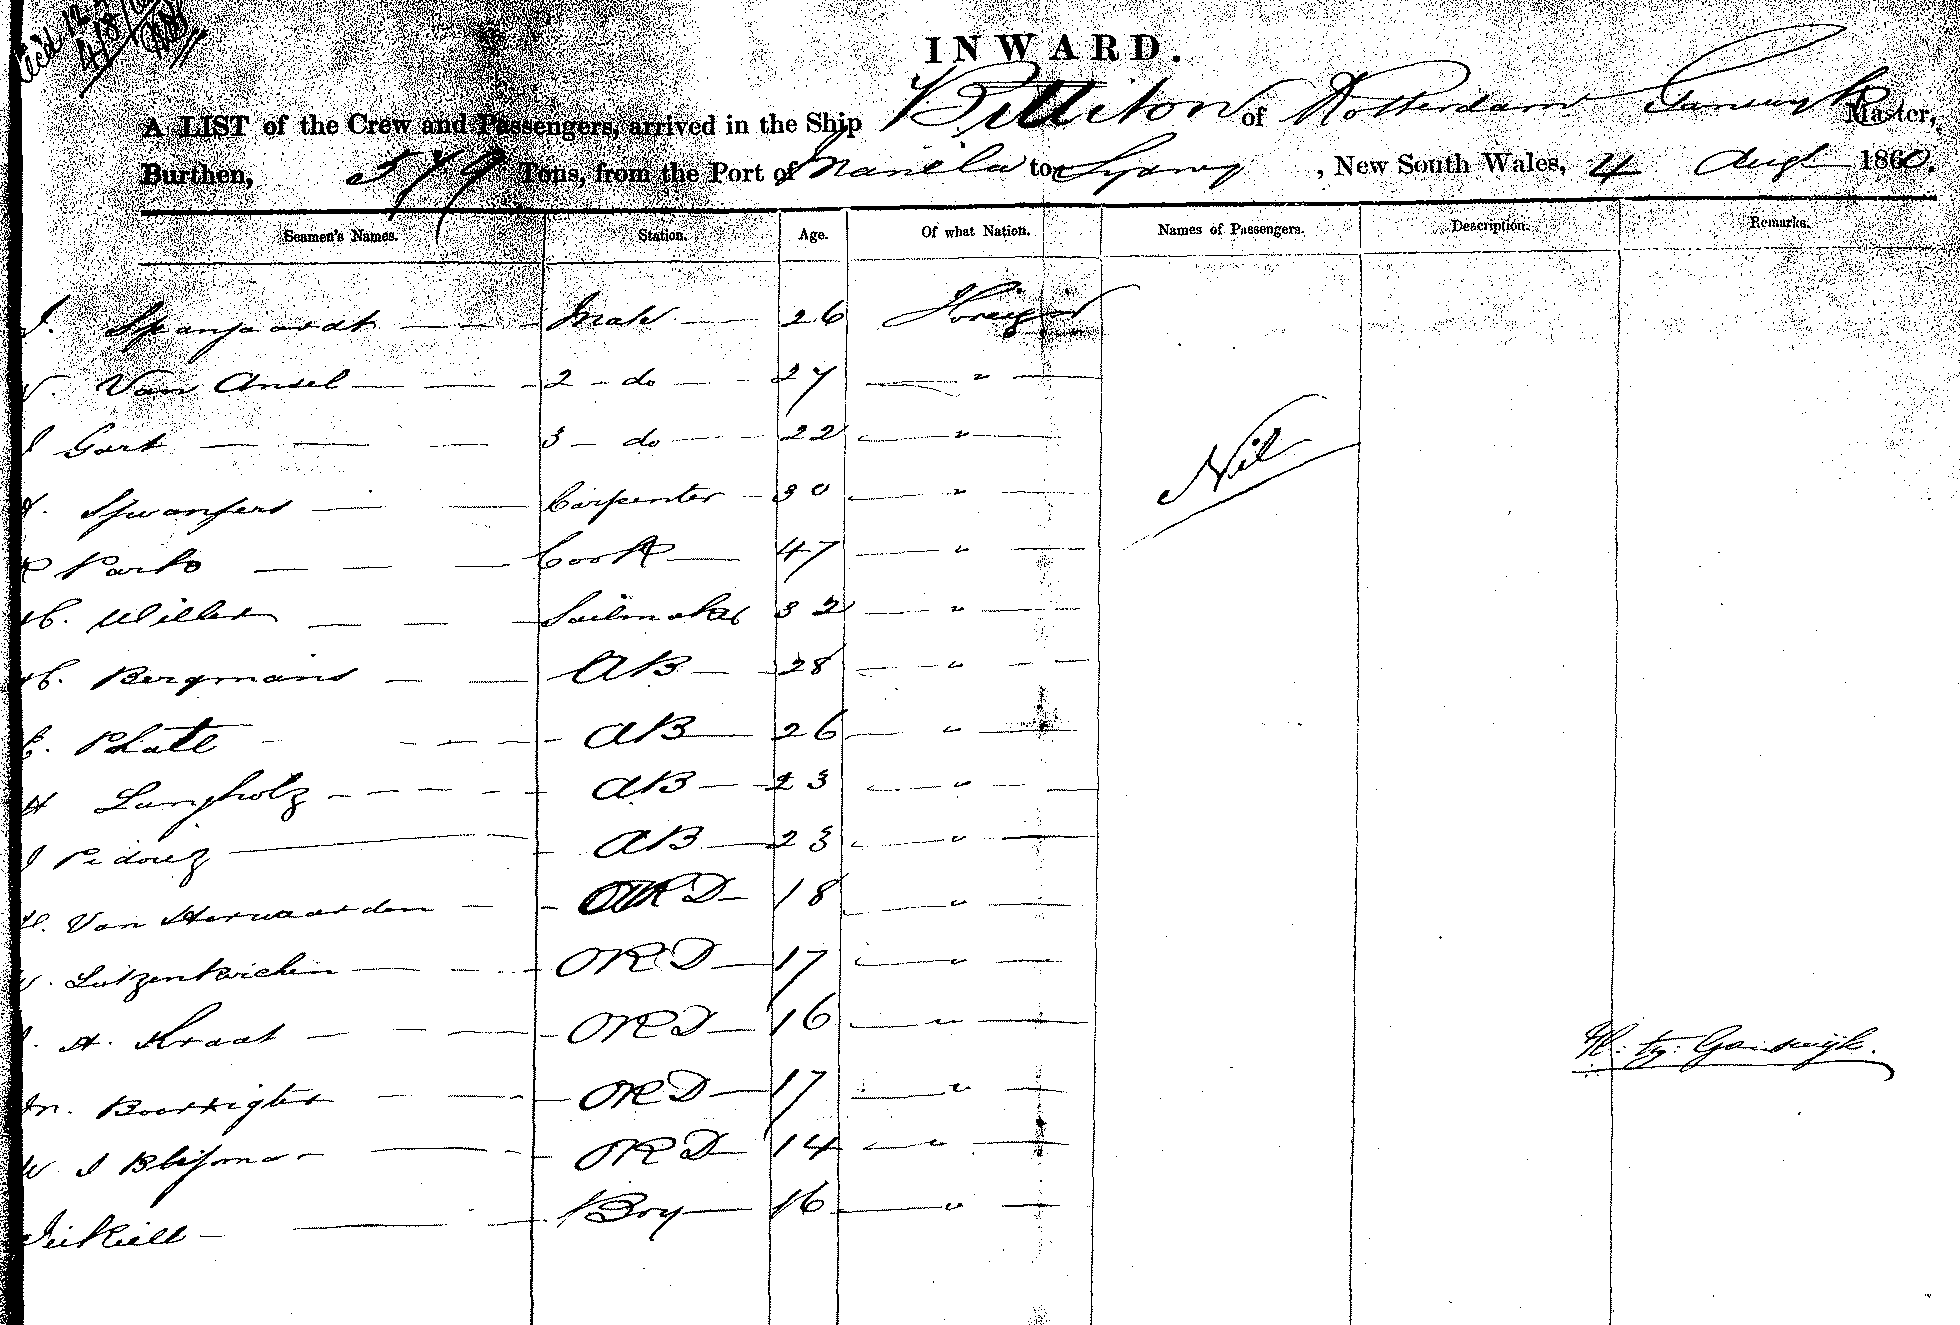 INWARD.
A LIST of the Crew and Passengers, arrived in the Ship Billiton of Rotterdam Master,
Burthen, 579 Tons, from the Port of Manila to Sydney, New South Wales, 4 Augt 1860.
Seamen's Names. Station. Age. Of what Nation. Names of Passengers. Description. Remarks.
J. Spanjaardt — — — Mate — 26 Foreign
V. Van Ansel — — — 2 - do — - 27 — " —
J Gort — — — 3 - do — - 22 — " —
Nil
Carpenter - 30 — " —
Cook — 47 — " —
H. Willer — — — Sailmaker 32 — " —
H. Bergmans — — AB — 28 — " —
Plate - - - - AB — 26 — " —
H Langholz - - - - AB — 23 — " —
J — AB — 23 — " —
Van Herwaarden — - ORD - 18 — " —
Lutzenkirchen — — - ORD — 17 — " —
J. H. Kraat — — — ORD — 16 — " —
H. tz. Ganswijk.
M. Boerrigter — — - ORD — 17 — " —
W J Blijma — — - ORD — 14 — " —
Boy — 16 — " —